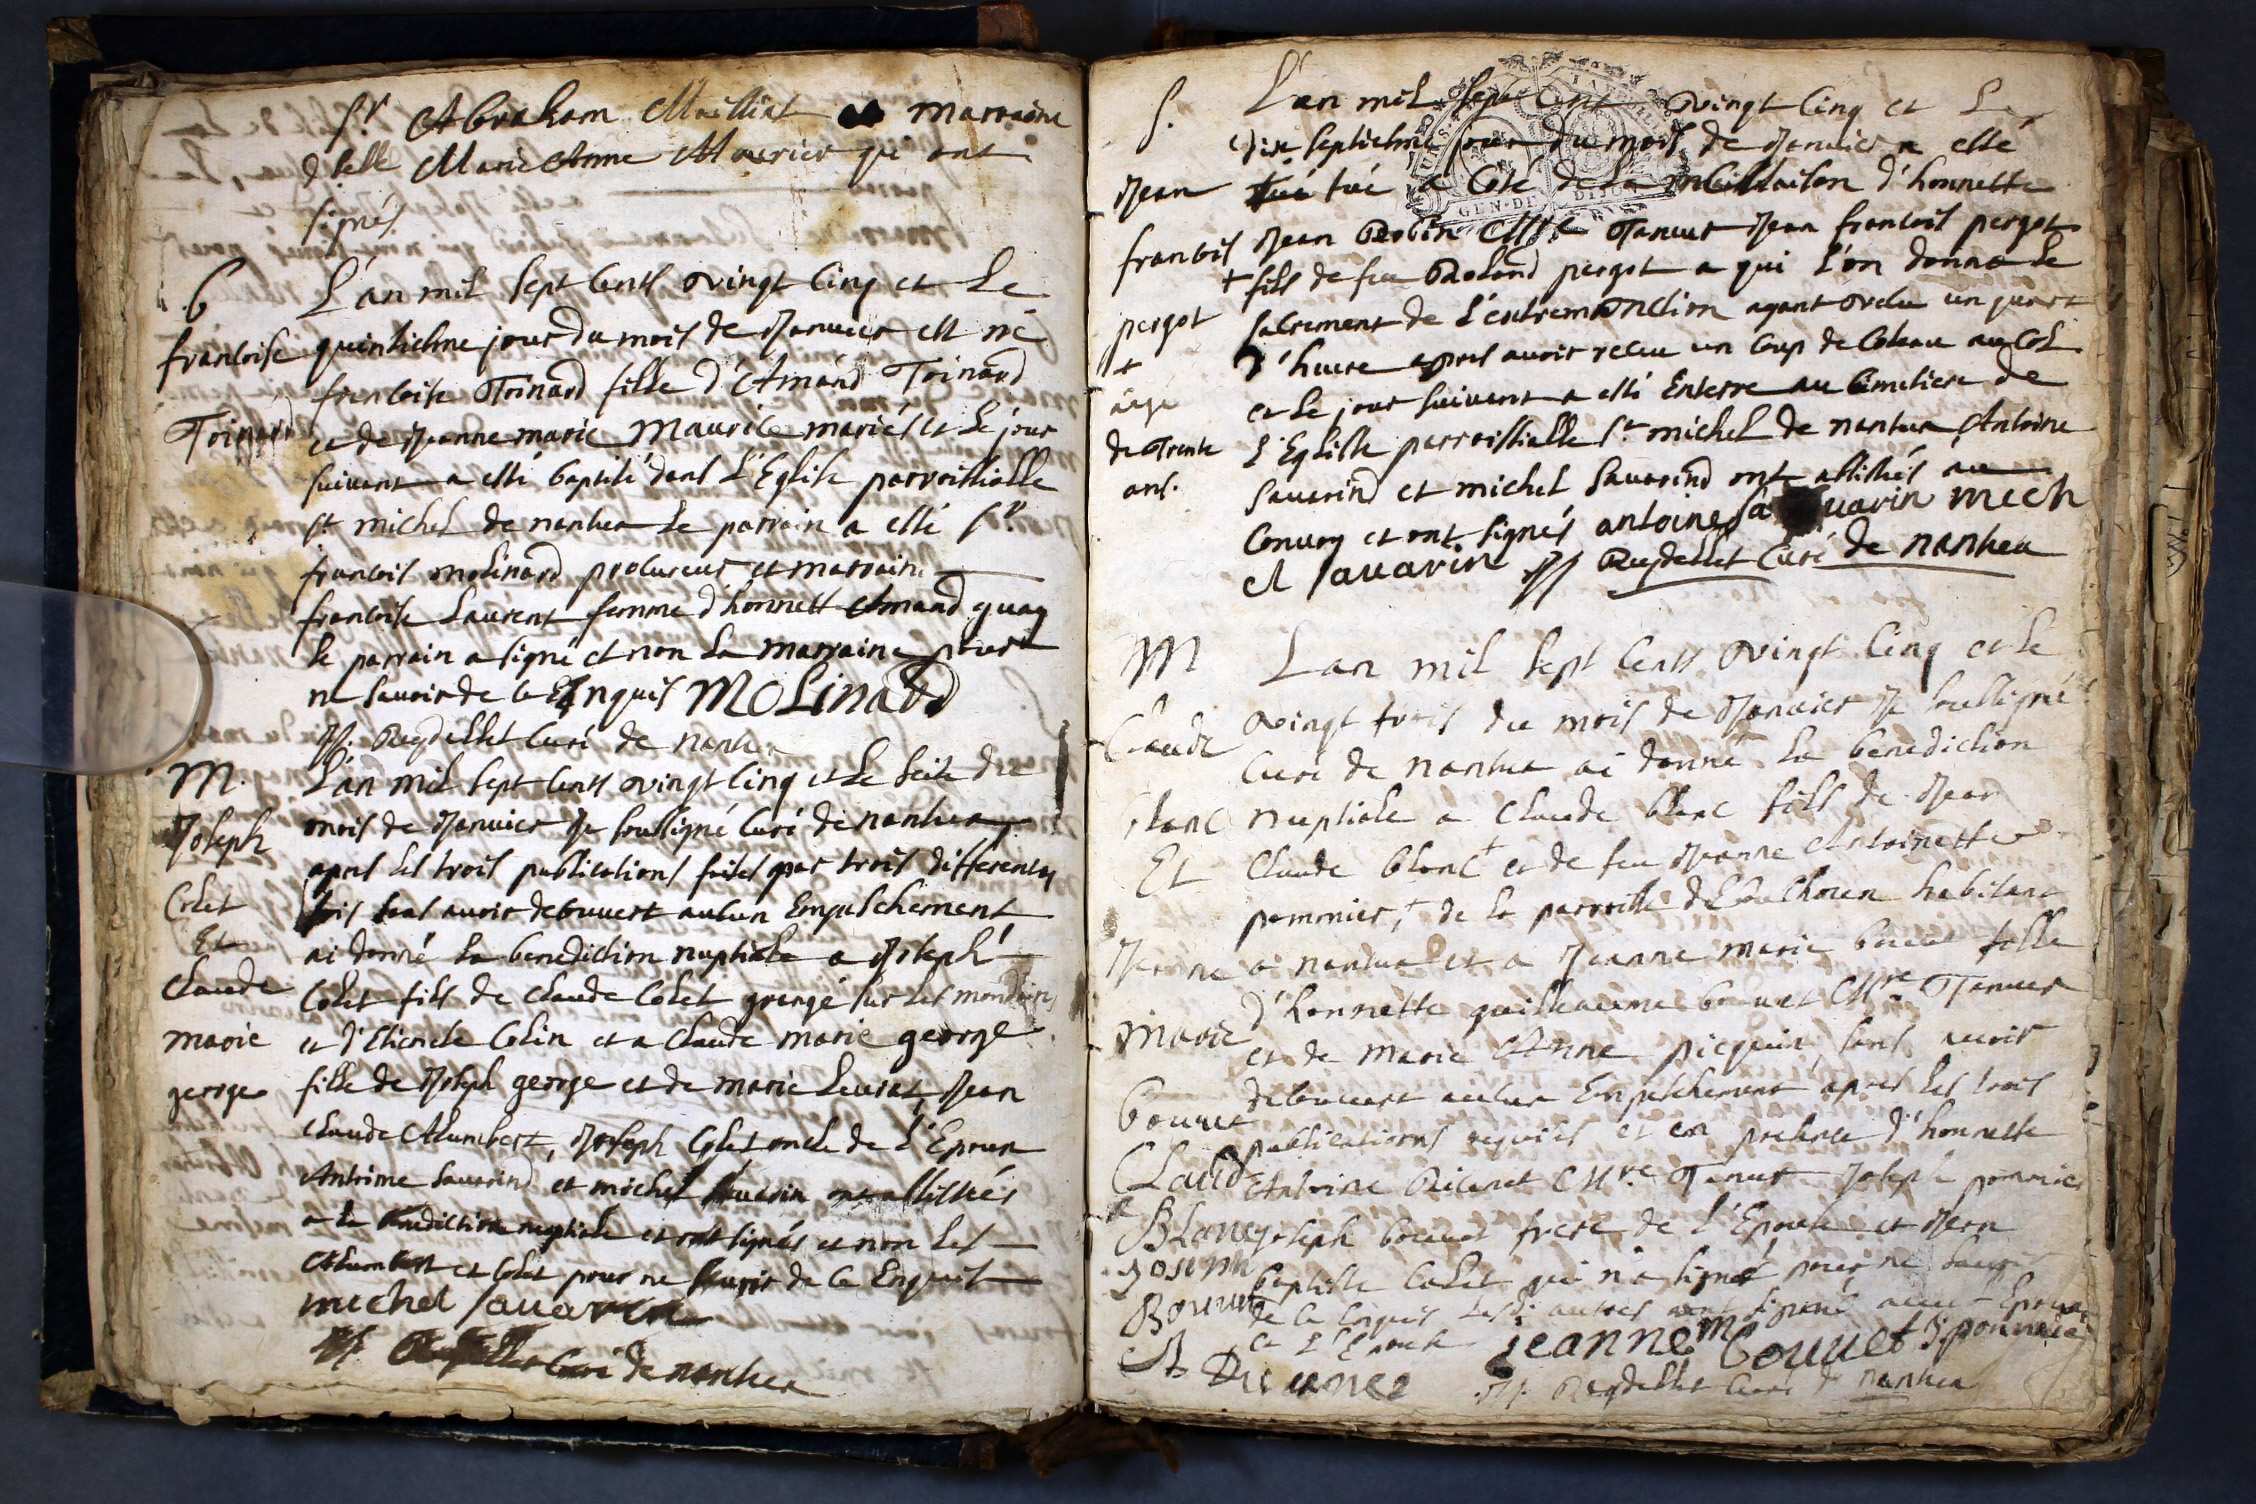 Sr Abraham Mailliat marraine
dlelle Marie Anne Maurier qui ont
signés
b
L'an mil sept cents vingt cinq et le
francoise
quinzieme jour du mois de Janvier est né
francoise Troinard fille d'Amand Troinard
Troinard
et de Jeanne marie Maurice mariés et le jour
suivant a esté baptisé dans l'Eglise parroissialle
st michel de nantua le parrain a esté sr
francois molinard procureur et marraine
francoise Laurent femme d'honnett Amand
le parrain a signé et non la marraine pour
ne savoir de ce Enquis MOLINARD
Reydellet Curé de nantua
M.
L'an mil sept cents vingt cinq et le seize du
Joseph
mois de Janvier Je soussigné Curé de nantua
apres les trois publications faites par trois differentes
Colet
fois sans avoir decouvert aucun Empeschement
Et
ai donné la benediction nuptiale a Joseph
Claude
Colet fils de Claude Colet grangé sur les
marie
et d'Etiennete Colin et a Claude marie george
george
fille de Joseph george et de marie Levrat, Jean
Claude Alumbert, Joseph Colet oncle de l'Epoux
Antoine Savarind et michel Savarin ont assistés
a la benediction nuptiale et ont signés et non les
Alumbert et Colet pour ne savoir de ce Enquis
michel savarin
Reydellet Curé de nantua
S.
L'an mil sept cent vingt cinq et le
dix septiesme jour du mois de Janvier a esté
Jean
tué a Coté de la maison d'honnette
francois
Jean Robin Mtre Tanneur Jean francois pergot
+ fils de feu Roland pergot a qui l'on donna le
pergot
sacrement de l'extremonction ayant vecu un quart
+
d'heure apres avoir receu un coup de Coteau au Col
agé
et le jour suivant a esté Enterre au Cimetiere de
de trente
l'Eglise parroissialle st michel de nantua, Antoine
ans.
Savarind et michel Savarind ont assistés au
Convoy et ont signés antoine savarin mich
el savarin Reydellet Curé de nantua
M
L'an mil sept cents vingt cinq et le
vingt trois du mois de Janvier Je soussigné
Claude
Curé de nantua ai donné la benediction
blanc
nuptiale a Claude blanc fils de Jean
Et
Claude blanc + et de feu Jeanne Antoinette
pommier, + de la parroisse habitant
Jeanne
a nantua et a Jeanne marie bouvet fille
d'honnette guilleaume bouvet Mtre Tanneur
marie
et de marie Anne picquin, sans avoir
bouvet
decouvert aucun Empeschement apres les trois
publications requises et en presence d'honnette
CLaude
Antoine Mtre Tanneur Joseph pommier
BLanc
joseph bouvet frere de l'Epouse et Jean
Joseph
baptiste Colet qui n'a signé pour ne savoir
Bouvet
de ce Enquis les autres ont signés avec Epoux
et l'Epouse jeanne m bouvet J pommier
Reydellet Curé de nantua